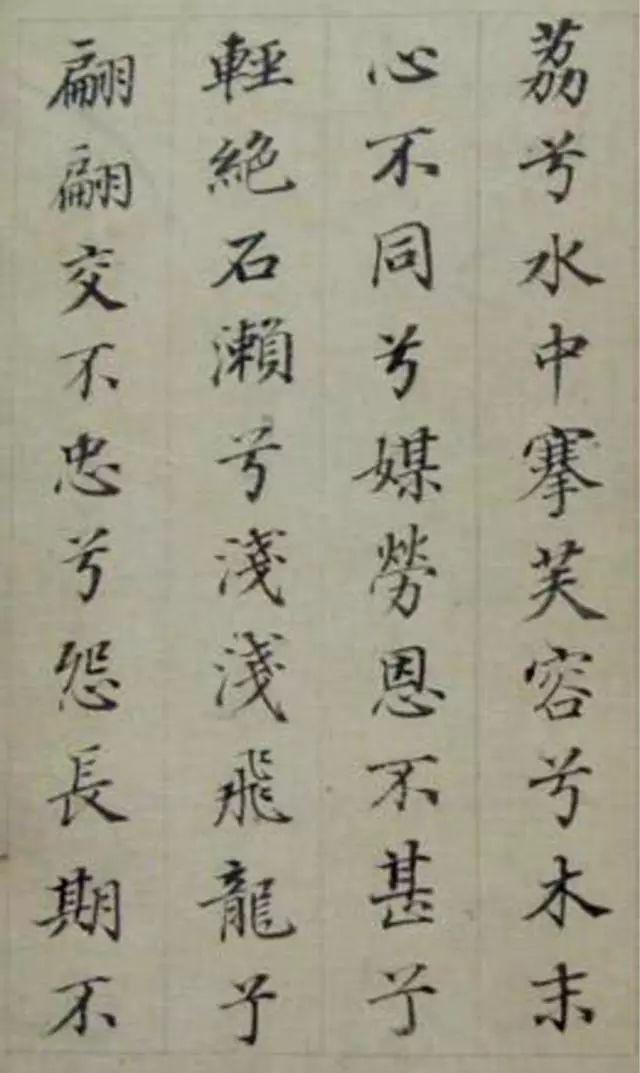 荔兮水中搴芙容兮木末
心不同兮媒勞恩不甚兮
輕絶石瀨兮淺淺飛龍兮
翩翩交不忠兮怨長期不